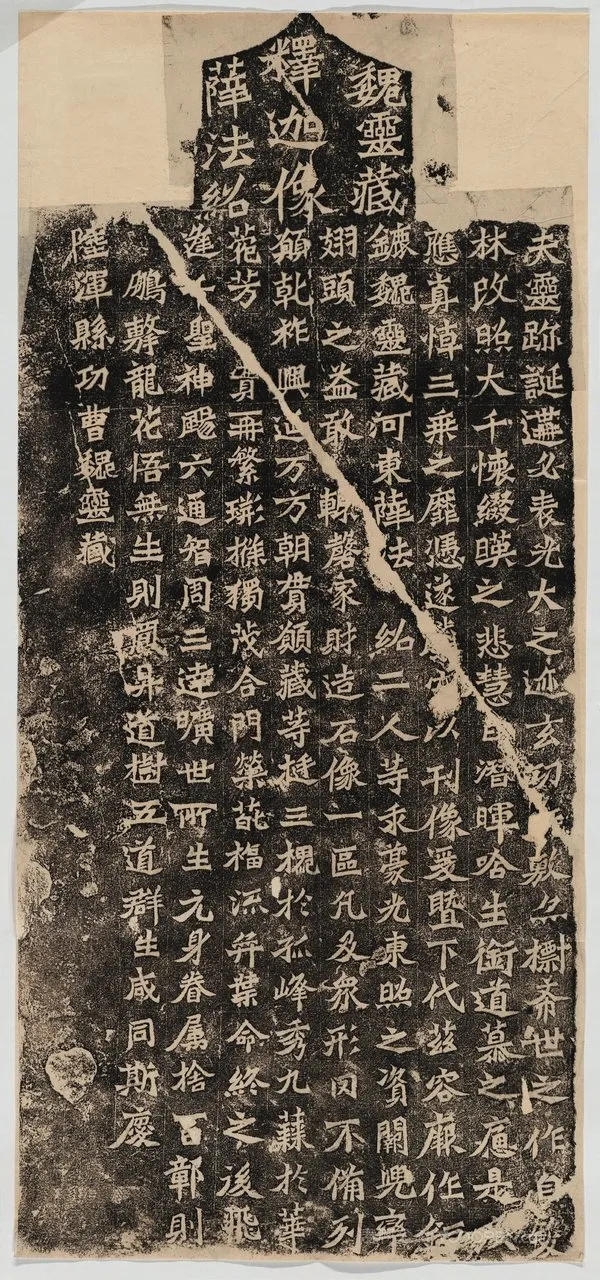 魏靈藏
釋迦像
薛法紹
夫靈跡誕遘必表光大之迹玄功敷亦標希世之作自
林改照大千懷綴暎之悲慧日潛暉哈生銜道慕之痛是
應真悼三乘之靡憑遂空以刊像爰暨下代茲容厥作
鏕魏靈藏河東薛法紹二人等求豪光東照之資闕兜率
翅頭之益敢輒磬家財造石像一區凡及眾形罔不備列
願乾祚興延万方朝貫願藏等挺三槐於孤峰秀九蕀於華
菀芳實再繁荊條獨茂合門榮葩福流弈葉命終之後飛
逢千聖神颺六通智周三達曠世所生元身眷屬捨百鄣則
鵬擊龍花悟無生則鳳昇道樹五道群生咸同斯慶
陸渾縣功曹魏靈藏